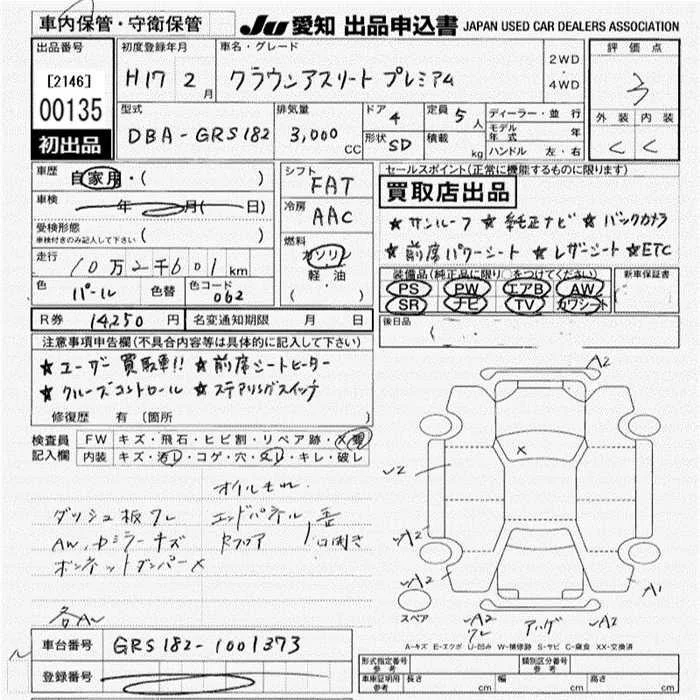 車内保管・守衛保管
JU 愛知 出品申込書 JAPAN USED CAR DEALERS ASSOCIATION
出品番号
[2146]
00135
初出品
初度登録年月
H17 2月
車名・グレード
クラウンアスリート プレミアム
2WD
・
4WD
評価点
3
外装 内装
C C
型式
DBA-GRS182
排気量
3,000 CC
ドア 4
形状 SD
定員 5人
積載 kg
ディーラー・並行
モデル年式 年
ハンドル 左・右
車歴
自家用・( )
車検
年 月( 日)
受検形態
車検付きのみ記入して下さい ( )
走行
10万2千601km
色 パール 色替 色コード 062
シフト
FAT
冷房
AAC
燃料
ガソリン
軽・油
( )
セールスポイント(正常に機能するものに限ります)
買取店出品
★サンルーフ ★純正ナビ ★バックカメラ
★前席パワーシート ★レザーシート ★ETC
装備品(純正品に限り○をつけてください)
PS PW エアB AW
SR ナビ TV カワシート
新車保証書
後日品
R券 14,250円 名変通知期限 月 日
注意事項申告欄(不具合内容等は具体的に記入して下さい)
★ユーザー買取車!! ★前席シートヒーター
★クルーズコントロール ★ステアリングスイッチ
修復歴 有 〔箇所 〕
検査員
記入欄
FW キズ・飛石・ヒビ割・リペア跡・X要
内装 キズ・汚レ・コゲ・穴・スレ・キレ・破レ
オイルモレ
ダッシュ板ワレ エンドパネル 歪
AW,ドミラーキズ Rフロア 凹開き
ボンネットダンパーX
各A
A2
X
A2
A2
A2
A1
A2
ワレ
スペア
A-キズ E-エクボ U-凹み W-補修跡 S-サビ C-腐食 XX-交換済
車台番号 GRS182-1001373
登録番号
形式指定番号
参考
類別区分番号
参考
車庫証明用
参考
長さ cm 幅 cm 高さ cm